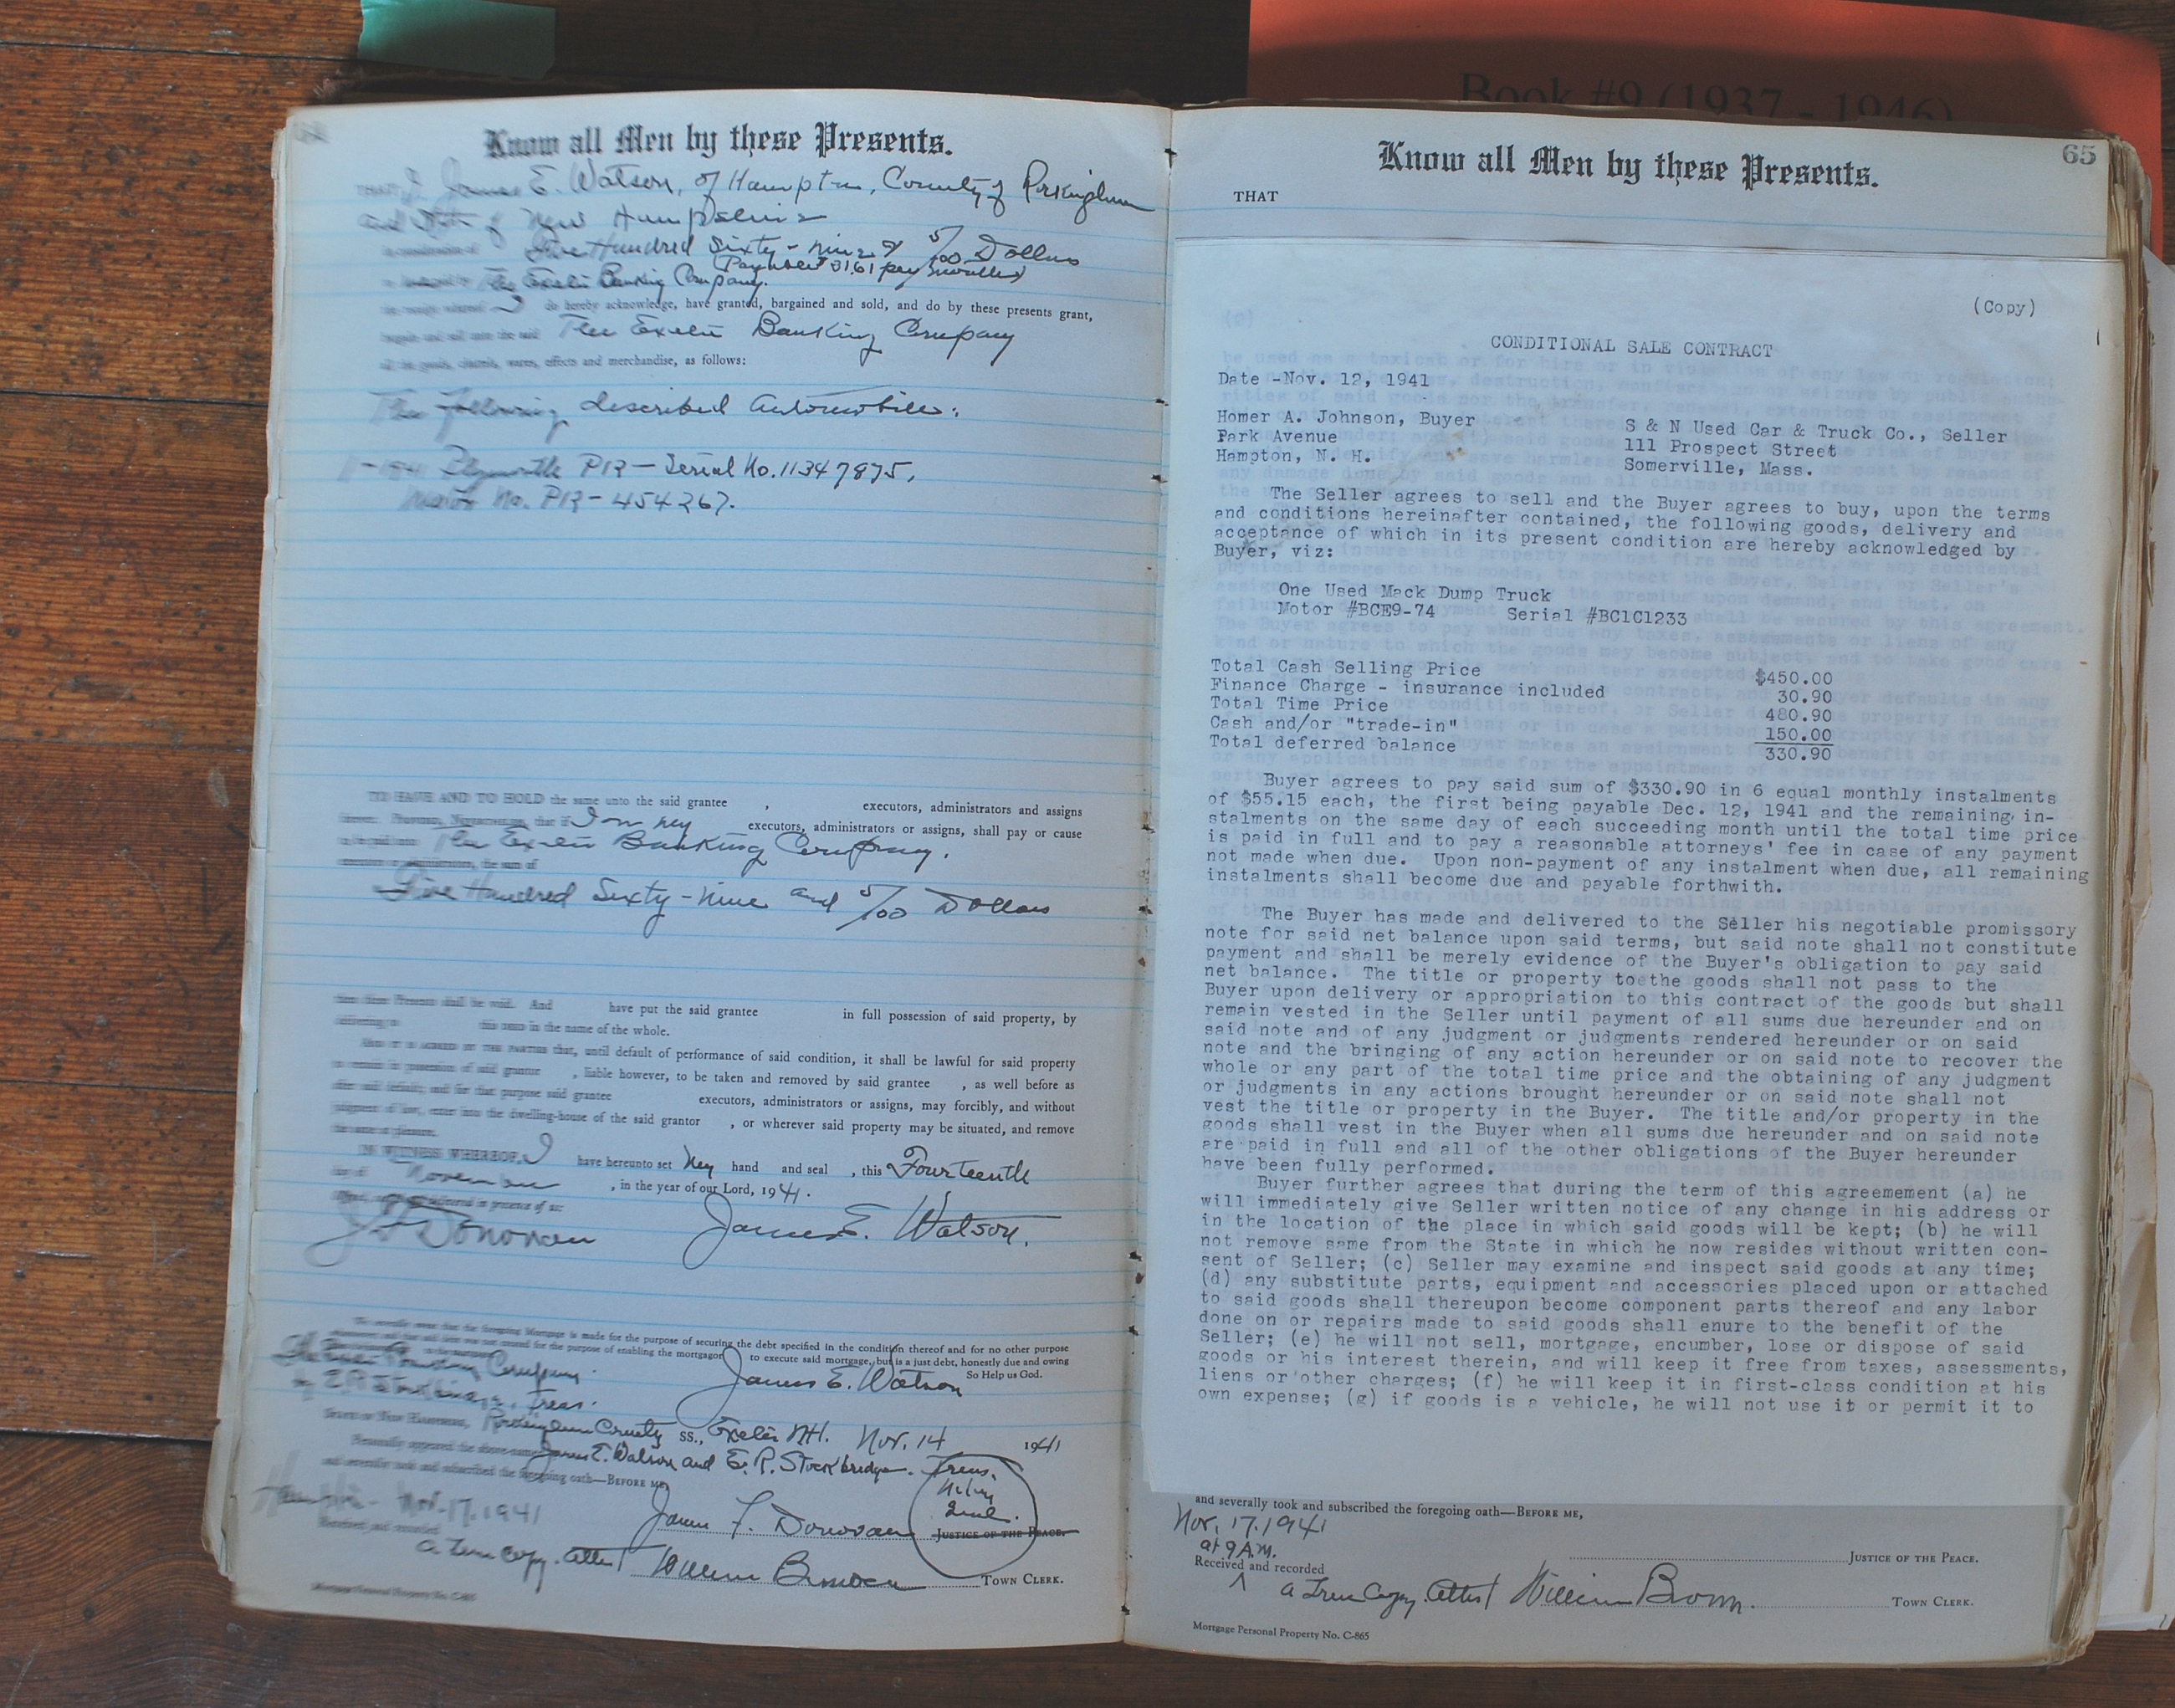 Book #9 (1937 - 1946)
Know all Men by these Presents.
THAT I James E. Watson, of Hampton, County of Rockingham
and State of New Hampshire
in consideration of Five Hundred Sixty-nine & 5/100 Dollars
(Payable 31.61 pay monthly)
The Exeter Banking Company.
I do hereby acknowledge, have granted, bargained and sold, and do by these presents grant,
bargain and sell unto the said The Exeter Banking Company
all the goods, chattels, wares, effects and merchandise, as follows:
The following described automobile:
1-1941 Plymouth P12 - Serial No. 11347875.
Motor No. P12-454267.
TO HAVE AND TO HOLD the same unto the said grantee , executors, administrators and assigns
forever. Provided, Nevertheless, that if I or my executors, administrators or assigns, shall pay or cause
to be paid unto The Exeter Banking Company.
executors or administrators, the sum of
Five Hundred Sixty-nine and 5/100 Dollars
then these Presents shall be void. And have put the said grantee in full possession of said property, by
delivering to this same in the name of the whole.
AND IT IS AGREED BY THE PARTIES that, until default of performance of said condition, it shall be lawful for said property
to remain in possession of said grantor , liable however, to be taken and removed by said grantee , as well before as
after said default; and for that purpose said grantee executors, administrators or assigns, may forcibly, and without
judgment of law, enter into the dwelling-house of the said grantor , or wherever said property may be situated, and remove
the same at pleasure.
IN WITNESS WHEREOF, I have hereunto set my hand and seal , this Fourteenth
day of November , in the year of our Lord, 1941.
Signed, sealed and delivered in presence of us:
J F Donovan James E. Watson.
We severally swear that the foregoing Mortgage is made for the purpose of securing the debt specified in the condition thereof and for no other purpose
for the purpose of enabling the mortgagor to execute said mortgage, but is a just debt, honestly due and owing
So Help us God.
The Exeter Banking Company. James E. Watson
by E. R. Stockbridge, Treas.
STATE OF NEW HAMPSHIRE, Rockingham County SS., Exeter N.H. Nov. 14 1941
Personally appeared the above-named James E. Watson and E. R. Stockbridge. Treas.
and severally took and subscribed the foregoing oath—BEFORE ME,
Hampton - Nov. 17, 1941
James F. Donovan JUSTICE OF THE PEACE.
Received and recorded
a True Copy. Attest William Brown TOWN CLERK.
Mortgage Personal Property No. C-865
65
Know all Men by these Presents.
THAT
(Copy)
CONDITIONAL SALE CONTRACT
Date -Nov. 12, 1941
Homer A. Johnson, Buyer S & N Used Car & Truck Co., Seller
Park Avenue 111 Prospect Street
Hampton, N. H. Somerville, Mass.
The Seller agrees to sell and the Buyer agrees to buy, upon the terms
and conditions hereinafter contained, the following goods, delivery and
acceptance of which in its present condition are hereby acknowledged by
Buyer, viz:
One Used Mack Dump Truck
Motor #BCE9-74 Serial #BC1C1233
Total Cash Selling Price $450.00
Finance Charge - insurance included 30.90
Total Time Price 480.90
Cash and/or "trade-in" 150.00
Total deferred balance 330.90
Buyer agrees to pay said sum of $330.90 in 6 equal monthly instalments
of $55.15 each, the first being payable Dec. 12, 1941 and the remaining in-
stalments on the same day of each succeeding month until the total time price
is paid in full and to pay a reasonable attorneys' fee in case of any payment
not made when due. Upon non-payment of any instalment when due, all remaining
instalments shall become due and payable forthwith.
The Buyer has made and delivered to the Seller his negotiable promissory
note for said net balance upon said terms, but said note shall not constitute
payment and shall be merely evidence of the Buyer's obligation to pay said
net balance. The title or property toethe goods shall not pass to the
Buyer upon delivery or appropriation to this contract of the goods but shall
remain vested in the Seller until payment of all sums due hereunder and on
said note and of any judgment or judgments rendered hereunder or on said
note and the bringing of any action hereunder or on said note to recover the
whole or any part of the total time price and the obtaining of any judgment
or judgments in any actions brought hereunder or on said note shall not
vest the title or property in the Buyer. The title and/or property in the
goods shall vest in the Buyer when all sums due hereunder and on said note
are paid in full and all of the other obligations of the Buyer hereunder
have been fully performed.
Buyer further agrees that during the term of this agreemement (a) he
will immediately give Seller written notice of any change in his address or
in the location of the place in which said goods will be kept; (b) he will
not remove same from the State in which he now resides without written con-
sent of Seller; (c) Seller may examine and inspect said goods at any time;
(d) any substitute parts, equipment and accessories placed upon or attached
to said goods shall thereupon become component parts thereof and any labor
done on or repairs made to said goods shall enure to the benefit of the
Seller; (e) he will not sell, mortgage, encumber, lose or dispose of said
goods or his interest therein, and will keep it free from taxes, assessments,
liens or other charges; (f) he will keep it in first-class condition at his
own expense; (g) if goods is a vehicle, he will not use it or permit it to
and severally took and subscribed the foregoing oath—BEFORE ME,
Nov. 17, 1941
at 9 A.M.
JUSTICE OF THE PEACE.
Received and recorded
a True Copy. Attest William Brown. TOWN CLERK.
Mortgage Personal Property No. C-865